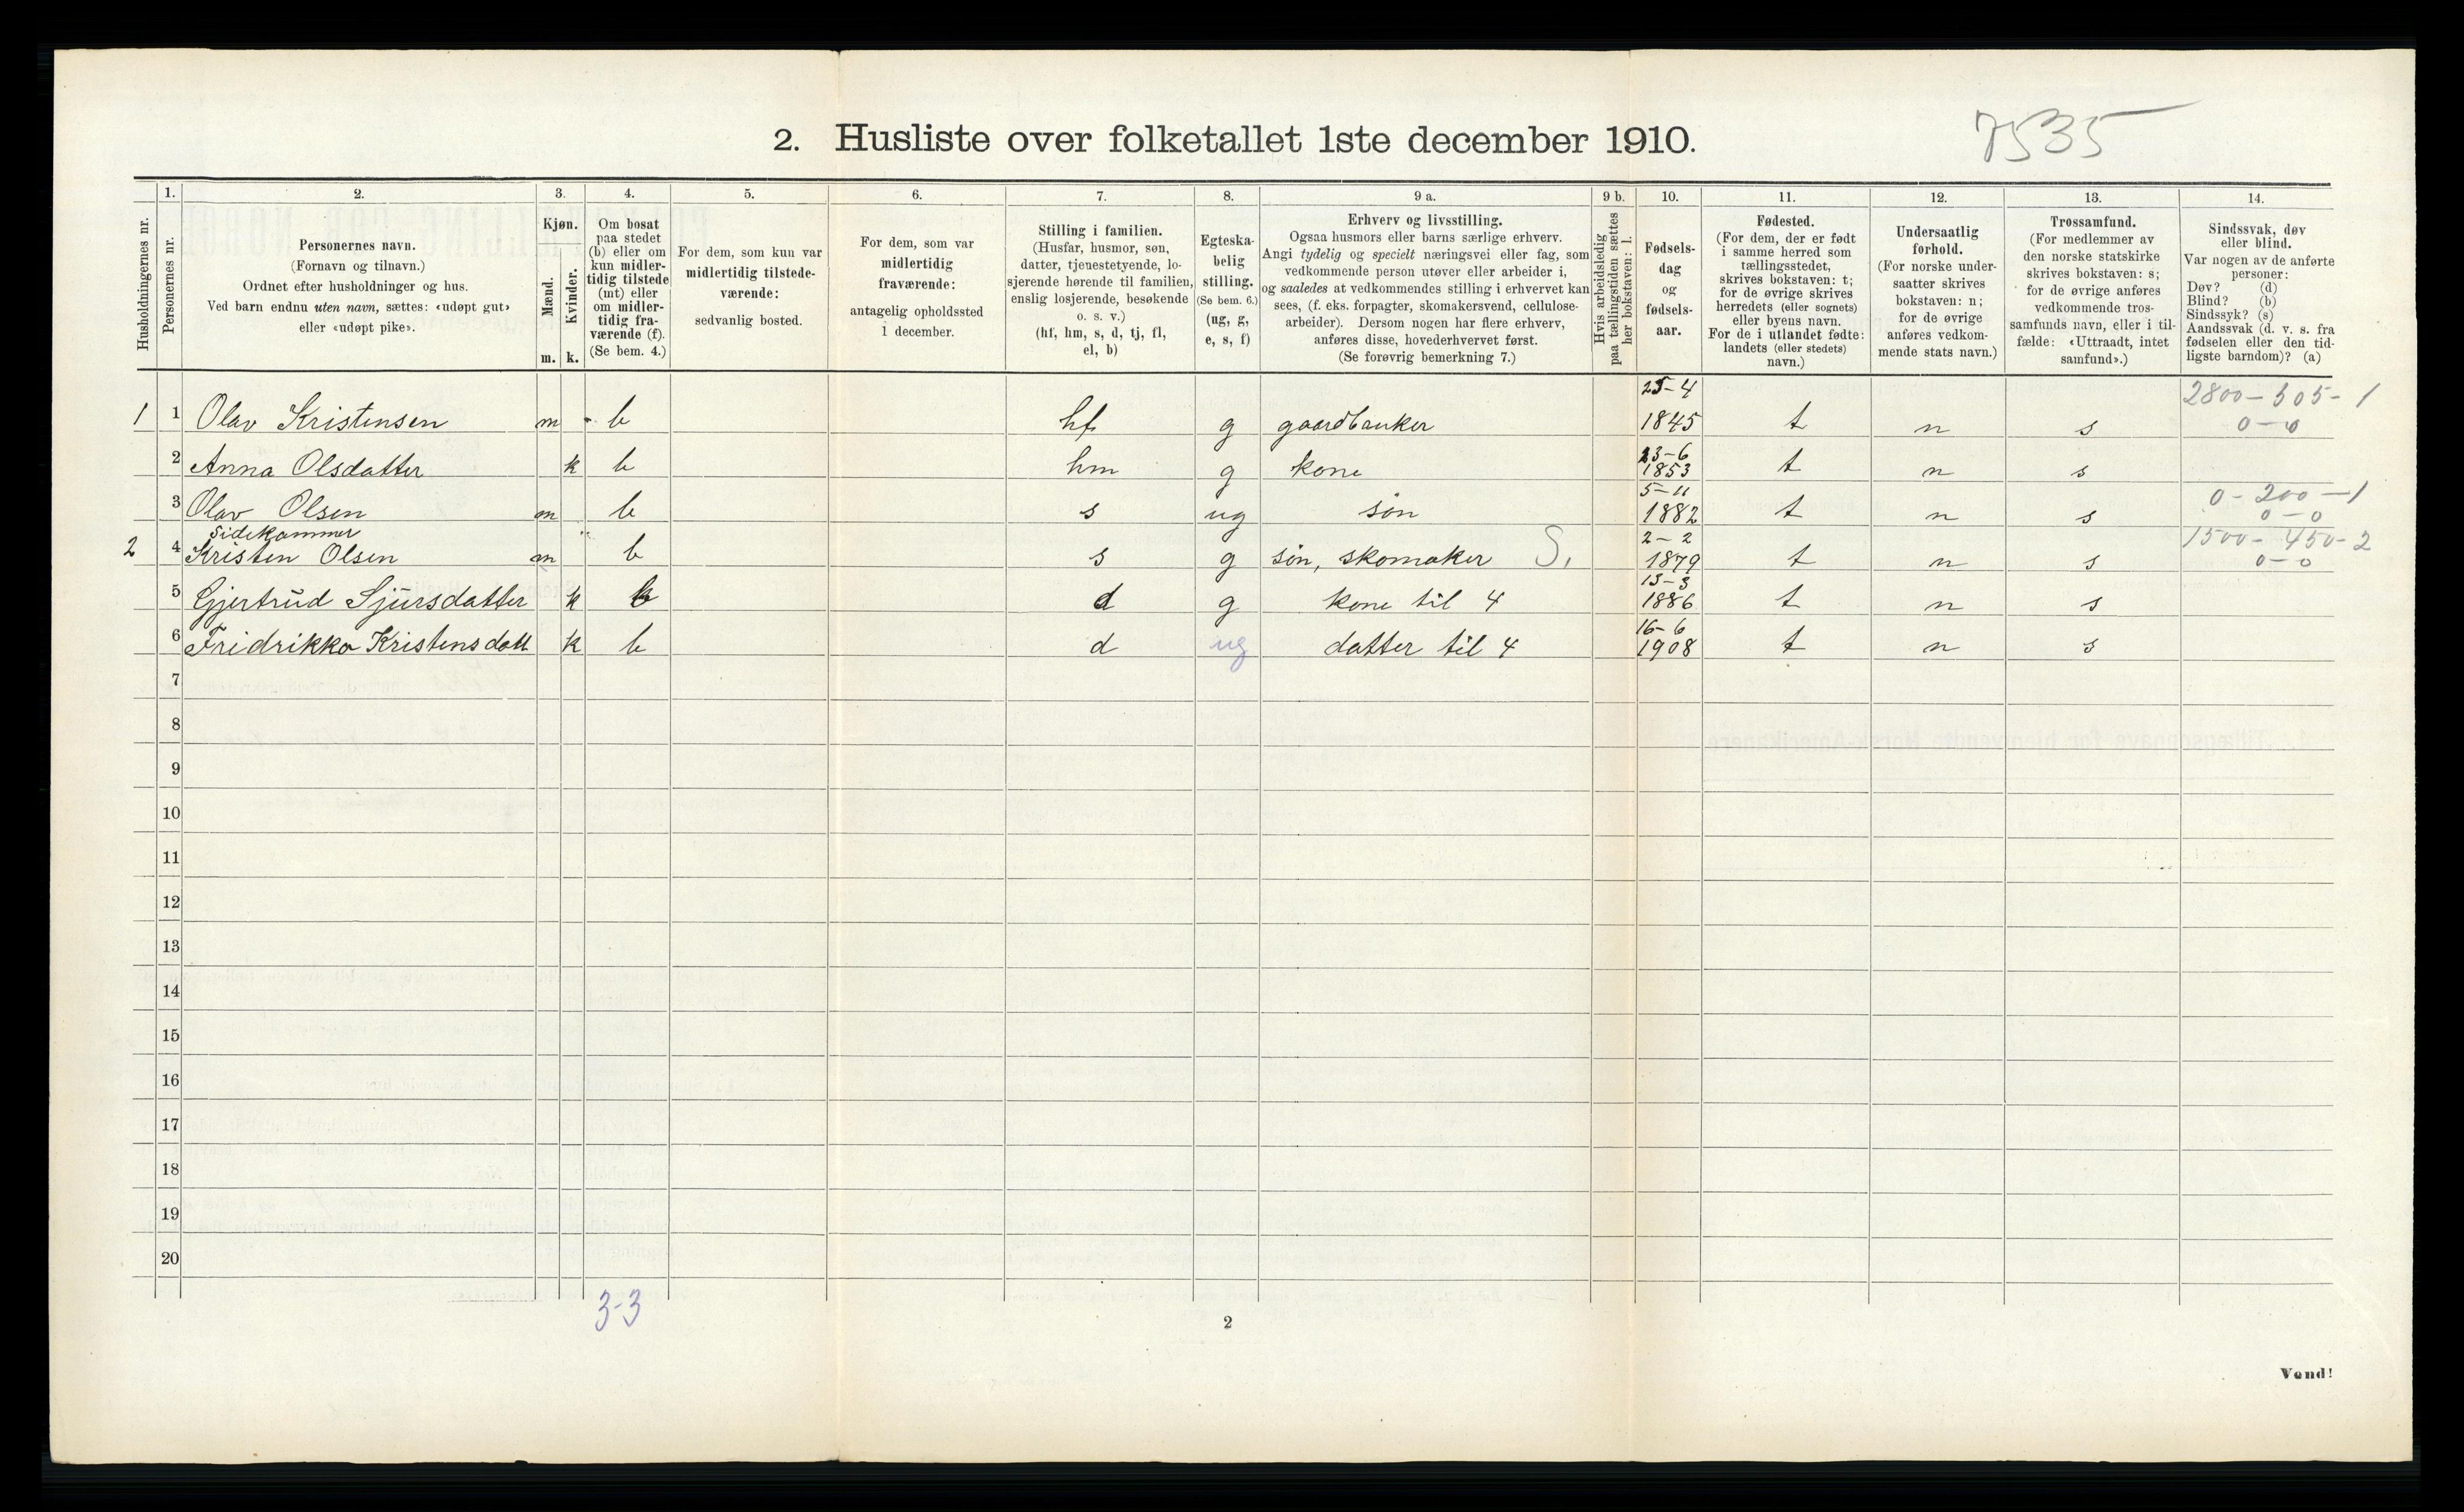 7535
2. Husliste over folketallet 1ste december 1910.
Husholdningernes nr.
1.
Personernes nr.
2.
Personernes navn.
(Fornavn og tilnavn.)
Ordnet efter husholdninger og hus.
Ved barn endnu uten navn, sættes: «udøpt gut»
eller «udøpt pike».
3.
Kjøn.
Mænd.
Kvinder.
m. k.
4.
Om bosat
paa stedet
(b) eller om
kun midler-
tidig tilstede
(mt) eller
om midler-
tidig fra-
værende (f).
(Se bem. 4.)
5.
For dem, som kun var
midlertidig tilstede-
værende:
sedvanlig bosted.
6.
For dem, som var
midlertidig
fraværende:
antagelig opholdssted
1 december.
7.
Stilling i familien.
(Husfar, husmor, søn,
datter, tjenestetyende, lo-
sjerende hørende til familien,
enslig losjerende, besøkende
o. s. v.)
(hf, hm, s, d, tj, fl,
el, b)
8.
Egteska-
belig
stilling.
(Se bem. 6.)
(ug, g,
e, s, f)
9 a.
Erhverv og livsstilling.
Ogsaa husmors eller barns særlige erhverv.
Angi tydelig og specielt næringsvei eller fag, som
vedkommende person utøver eller arbeider i,
og saaledes at vedkommendes stilling i erhvervet kan
sees, (f. eks. forpagter, skomakersvend, cellulose-
arbeider). Dersom nogen har flere erhverv,
anføres disse, hovederhvervet først.
(Se forøvrig bemerkning 7.)
9 b.
Hvis arbeidsledig
paa tællingstiden sættes
her bokstaven: l.
10.
Fødsels-
dag
og
fødsels-
aar.
11.
Fødested.
(For dem, der er født
i samme herred som
tællingsstedet,
skrives bokstaven: t;
for de øvrige skrives
herredets (eller sognets)
eller byens navn.
For de i utlandet fødte:
landets (eller stedets)
navn.)
12.
Undersaatlig
forhold.
(For norske under-
saatter skrives
bokstaven: n;
for de øvrige
anføres vedkom-
mende stats navn.)
13.
Trossamfund.
(For medlemmer av
den norske statskirke
skrives bokstaven: s;
for de øvrige anføres
vedkommende tros-
samfunds navn, eller i til-
fælde: «Uttraadt, intet
samfund».)
14.
Sindssvak, døv
eller blind.
Var nogen av de anførte
personer:
Døv? (d)
Blind? (b)
Sindssyk? (s)
Aandssvak (d. v. s. fra
fødselen eller den tid-
ligste barndom)? (a)
1 1 Olav Kristensen m b hf g gaardbruker 25-4 1845 t n s 2800-305-1 0-0
2 Anna Olsdatter k b hm g kone 23-6 1853 t n s
3 Olav Olsen m b s ug søn 5-11 1882 t n s 0-200-1 0-0
Sidekammer
2 4 Kristen Olsen m b s g søn, skomaker S. 2-2 1879 t n s 1500-450-2 0-0
5 Gjertrud Sjursdatter k b d g kone til 4 13-3 1886 t n s
6 Fridrikka Kristensdatt k b d ug datter til 4 16-6 1908 t n s
7
8
9
10
11
12
13
14
15
16
17
18
19
20
3-3
2
Vend!